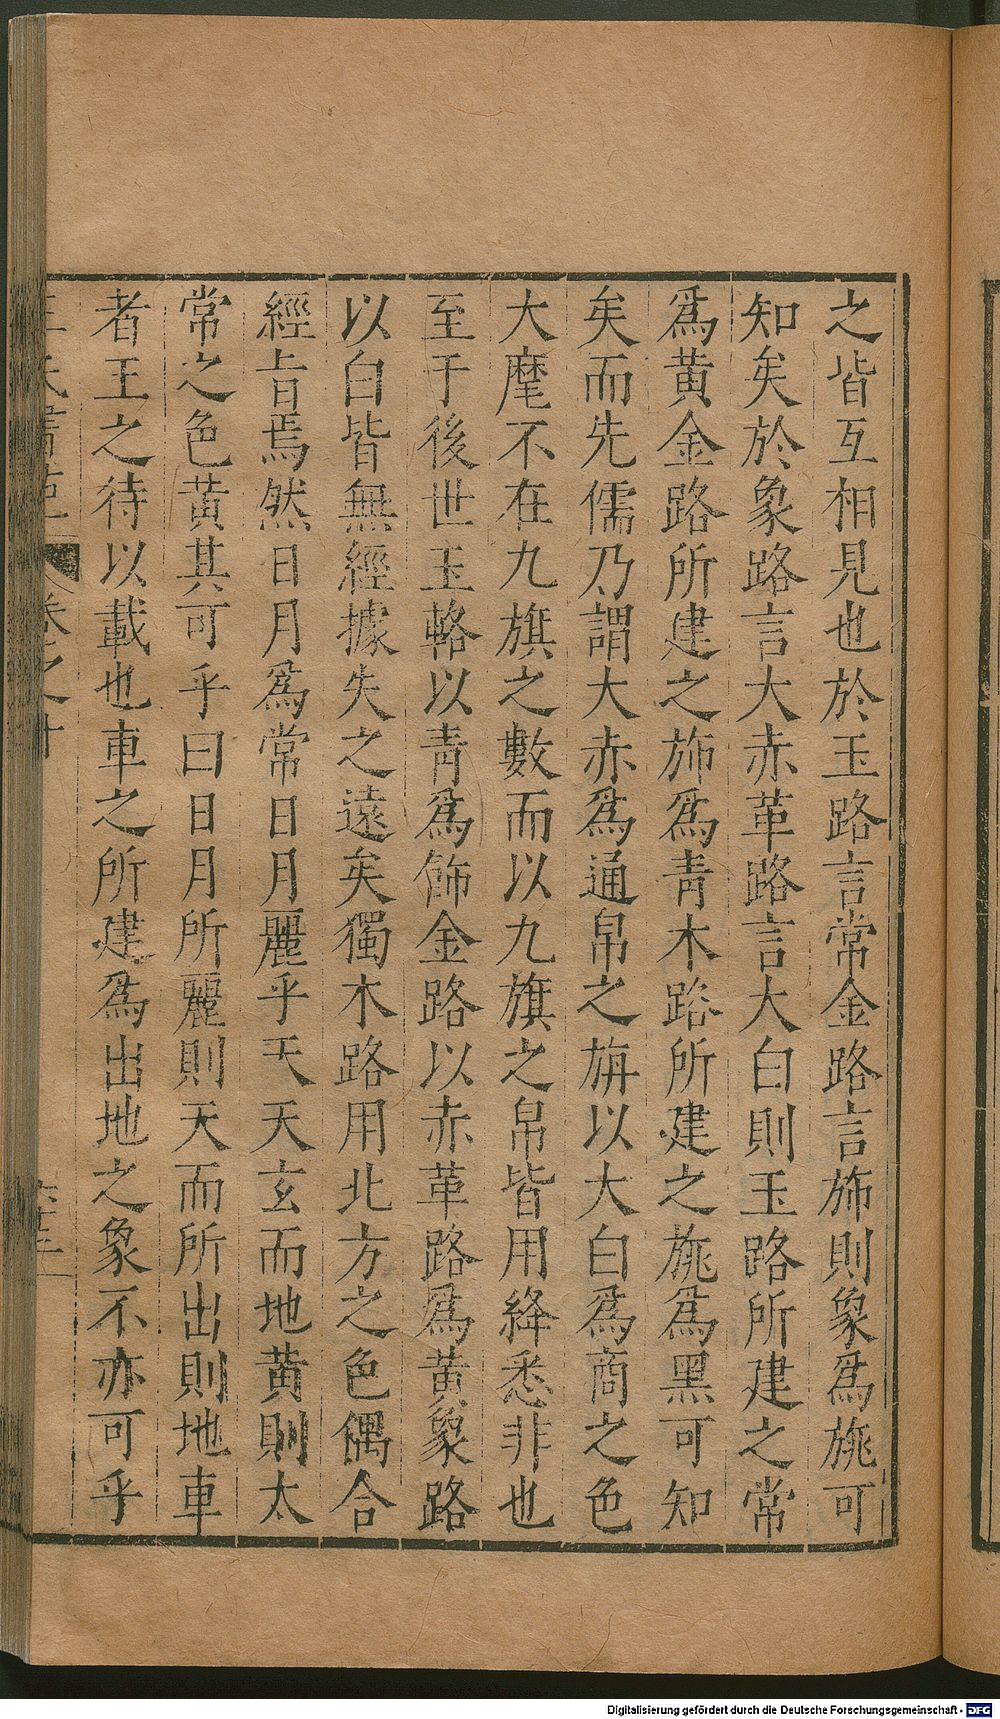 之皆互相見也於玉路言常金路言旆則象爲旐可
知矣於象路言大赤革路言大白則玉路所建之常
爲黃金路所建之旆爲青木路所建之旐爲黑可知
矣而先儒乃謂大赤爲通帛之旃以大白爲商之色
大麾不在九旗之數而以九旗之帛皆用絳悉非也
至于後世玉輅以青爲飾金路以赤革路爲黃象路
以白皆無經據失之遠矣獨木路用北方之色偶合
經旨焉然日月爲常日月麗乎天天玄而地黃則太
常之色黃其可乎曰日月所麗則天而所出則地車
者王之待以載也車之所建爲出地之象不亦可乎
卷之十
Digitalisierung gefördert durch die Deutsche Forschungsgemeinschaft - DFG